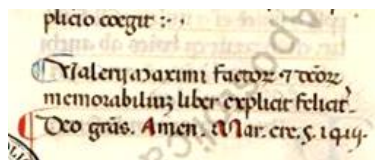 plicio coegit :·
Valerij Maximi factoꝝ ⁊ dcõꝝ
memorabiliuꝫ liber explicit felicit̃.
Deo grãs. Amen. Mar. cre, ș.